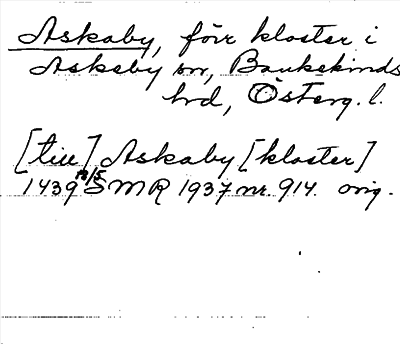 Askaby, förr kloster i
Askeby sn, Bankekinds
hrd, Österg. l.
[till] Askaby [kloster]
1439 18/5 SMR 1937 nr. 914. orig.